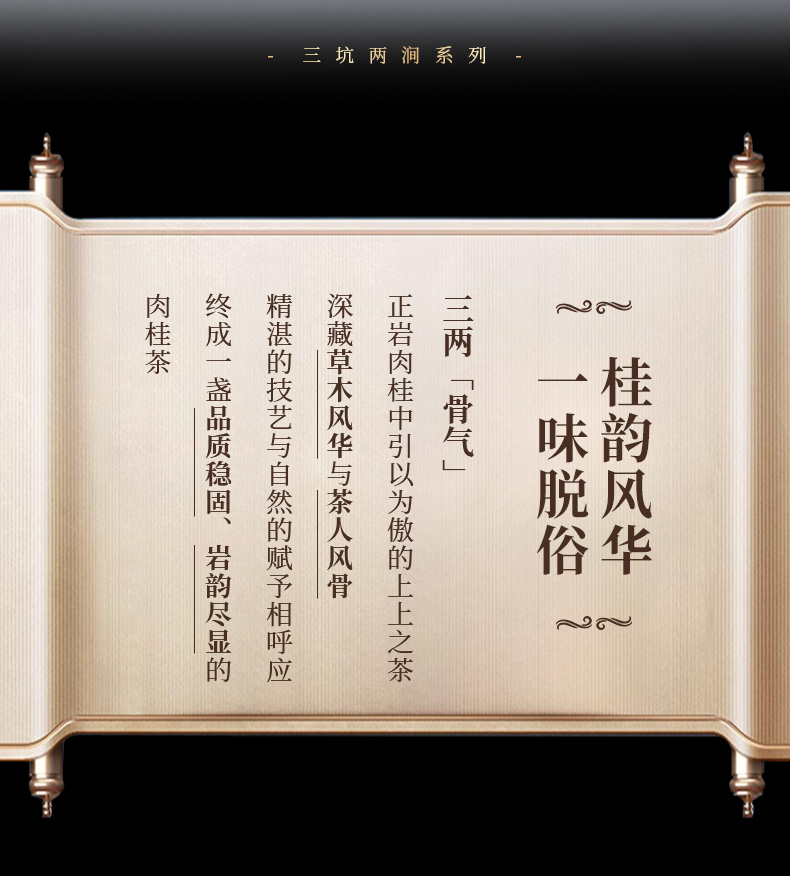 - 三坑两涧系列 -
桂韵风华
一味脱俗
三两「骨气」
正岩肉桂中引以为傲的上上之茶
深藏草木风华与茶人风骨
精湛的技艺与自然的赋予相呼应
终成一盏品质稳固、岩韵尽显的
肉桂茶